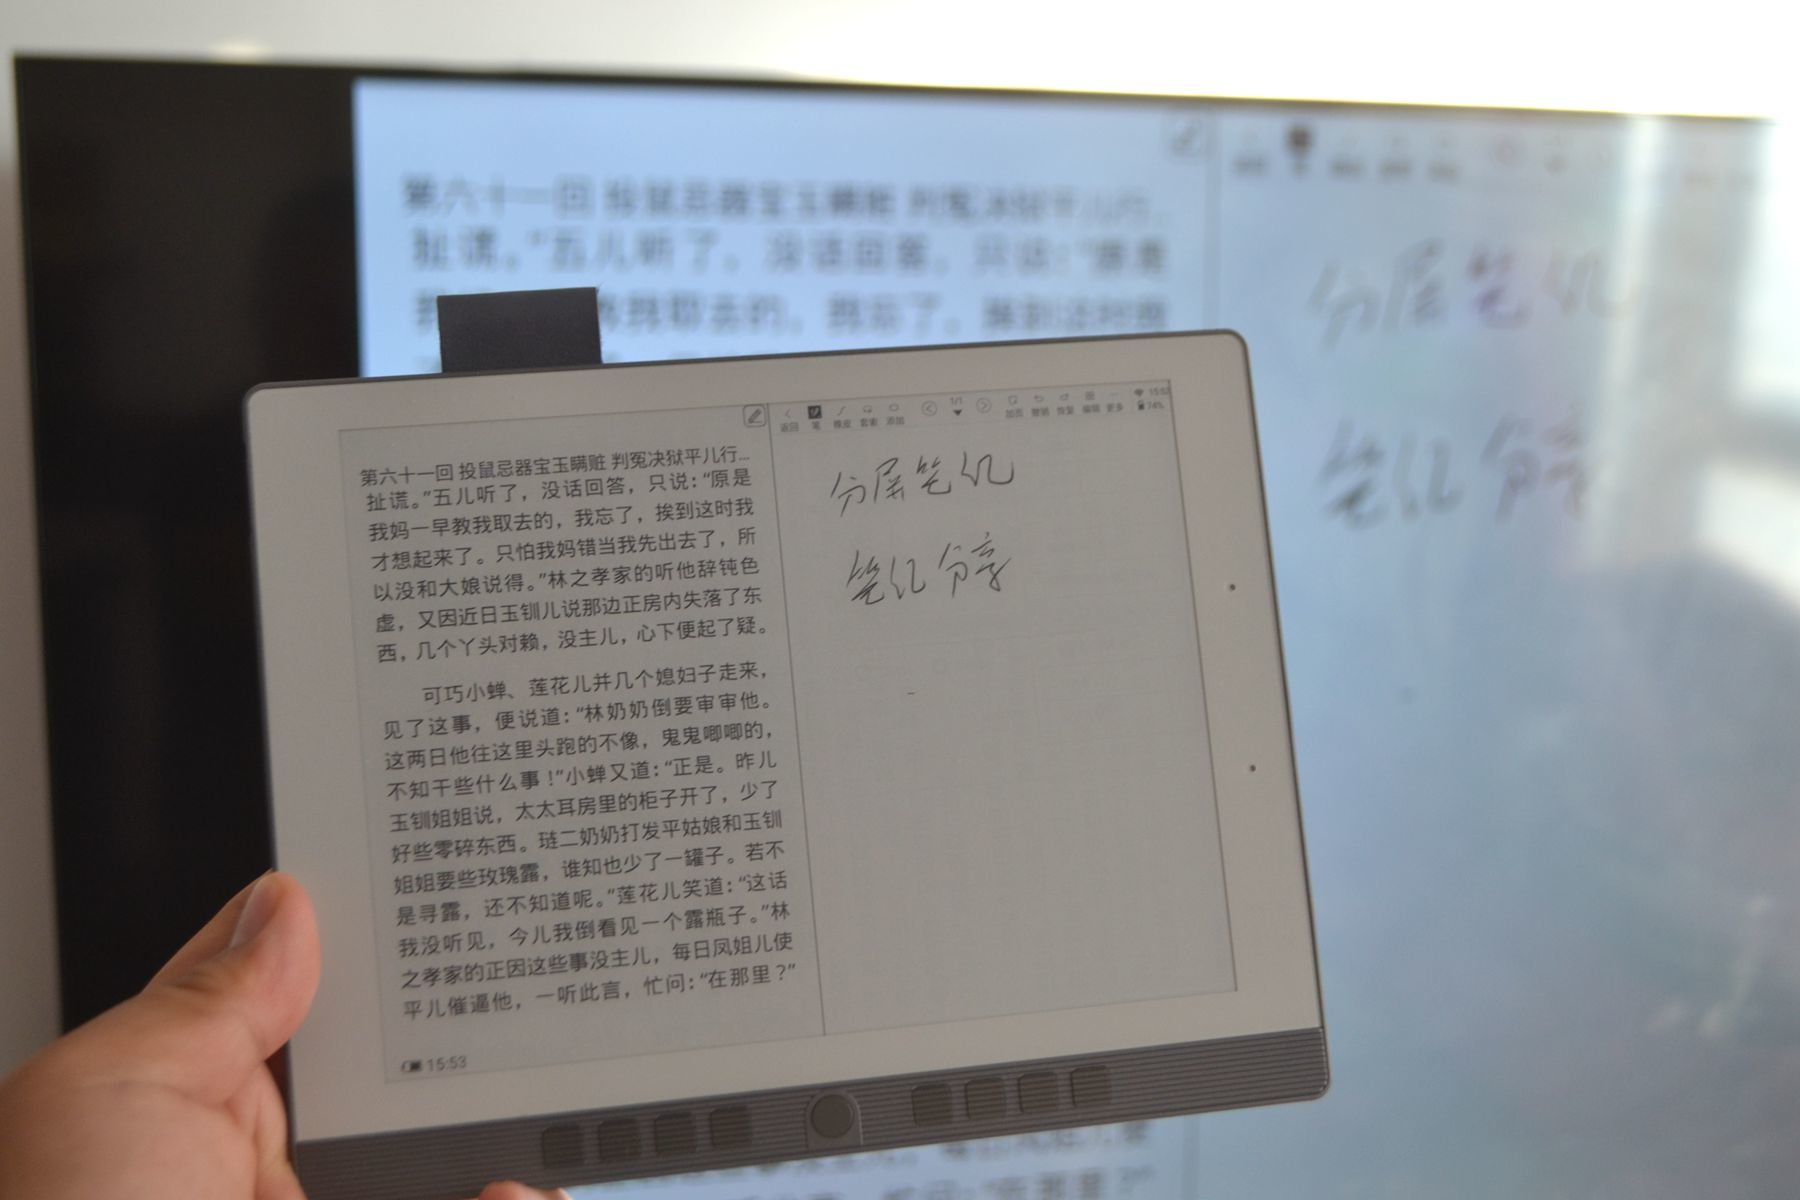 第六十一回 投鼠忌器宝玉瞒赃 判冤决狱平儿行...
扯谎。”五儿听了，没话回答，只说：“原是
第六十一回 投鼠忌器宝玉瞒赃 判冤决狱平儿行...
扯谎。”五儿听了，没话回答，只说：“原是
我妈一早教我取去的，我忘了，挨到这时我
才想起来了。只怕我妈错当我先出去了，所
以没和大娘说得。”林之孝家的听他辞钝色
虚，又因近日玉钏儿说那边正房内失落了东
西，几个丫头对赖，没主儿，心下便起了疑。
可巧小蝉、莲花儿并几个媳妇子走来，
见了这事，便说道：“林奶奶倒要审审他。
这两日他往这里头跑的不像，鬼鬼唧唧的，
不知干些什么事！”小蝉又道：“正是。昨儿
玉钏姐姐说，太太耳房里的柜子开了，少了
好些零碎东西。琏二奶奶打发平姑娘和玉钏
姐姐要些玫瑰露，谁知也少了一罐子。若不
是寻露，还不知道呢。”莲花儿笑道：“这话
我没听见，今儿我倒看见一个露瓶子。”林
之孝家的正因这些事没主儿，每日凤姐儿使
平儿催逼他，一听此言，忙问：“在那里？”
15:53
返回 笔 橡皮 套索 添加 1/1 加页 撤销 恢复 编辑 更多 74%
分屏笔记
笔记分享
分屏笔记
笔记分享